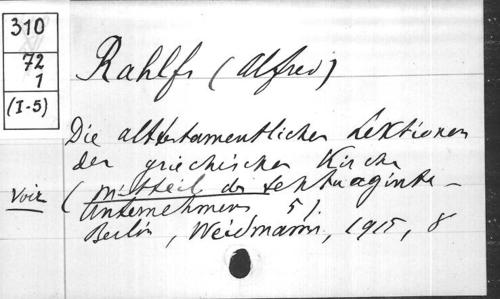 310
72
1
(I-5)
Rahlfs (Alfred)
Die alttestamentlichen Lektionen
der griechischen Kirche
Voir
(Mitteil der Septuaginta-
Unternehmens 5).
Berlin, Weidmann, 1915, 8